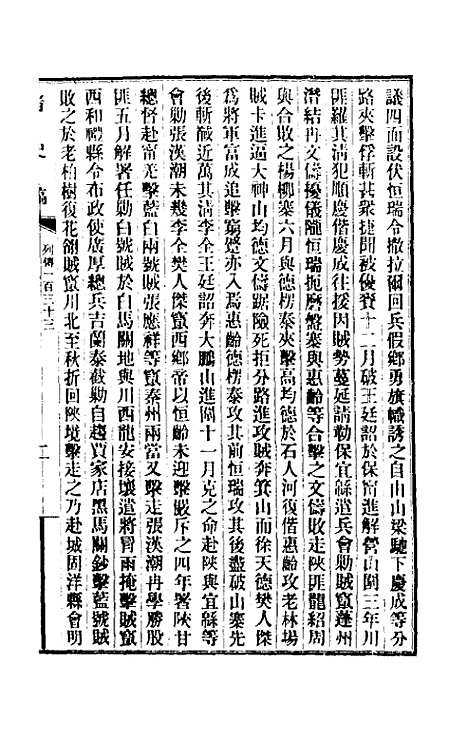 議四面設伏恒瑞令撒拉爾回兵假鄉勇旗幟誘之自山梁馳下慶成等分
路夾擊俘斬甚衆捷聞被優賚十二月破王廷詔於保甯進解營山圍三年川
匪羅其淸犯順慶偕慶成往援因賊勢蔓延請勒保宜緜遣兵會勦賊竄蓬州
潛結冉文儔擾儀隴恒瑞扼磨盤寨與惠齡等合擊之文儔敗走陝匪龍紹周
與合敗之楊柳寨六月與德楞泰夾擊高均德於石人河復偕惠齡攻老林場
賊卡進逼大神山均德文儔踞險死拒分路進攻賊奔箕山而徐天德樊人傑
爲將軍富成追擊窮蹙亦入焉惠齡德楞泰攻其前恒瑞攻其後盡破山寨先
後斬馘近萬其李全王廷詔奔大鵬山進圍十一月克之命赴陝與宜緜等
會勦張漢潮未幾李全樊人傑竄西鄉帝以恒齡未迎擊嚴斥之四年署陝甘
總督赴甯羌擊藍白兩號賊張應祥等竄秦州兩當又擊走張漢潮冉學勝股
匪五月解署任勦白號賊於白馬關地與川西龍安接壤遣將冒雨掩擊賊竄
西和禮縣令布政使廣厚總兵吉蘭泰截勦自趨賈家店黑馬關鈔擊藍號賊
敗之於老柏樹復花領賊竄川北至秋折回陝境擊走之乃赴城固洋縣會明
淸史稿
列傳一百三十三
二